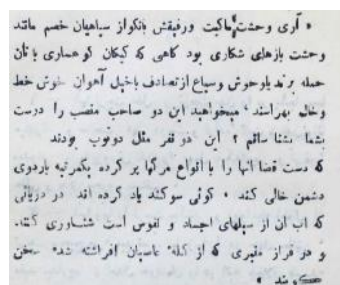 « آری وحشت مالیت ورفیقش بانکواز سپاهیان خصم مانند
وحشت بازهای شکاری بود گاهی که کبکان کوهساری با نان
حمله برند یاوحوش وسباع ازتصادف باخیل آهوان خوش خط
وخال بهراسند ، میخواهید این دو صاحب منصب را درست
بشما بشنا سانم ؟ این دو نفر مثل دوتوپ بودند
که دست قضا آنها را با انواع مرگها پر کرده یکمرتبه باردوی
دشمن خالی کند ، گوئی سوگند یاد کرده اند در دریائی
که آب آن از سیلهای اجساد و نفوس است شناوری کنند
و در فراز مقبری که از کله عاصیان افراشته شده سخن
گویند »